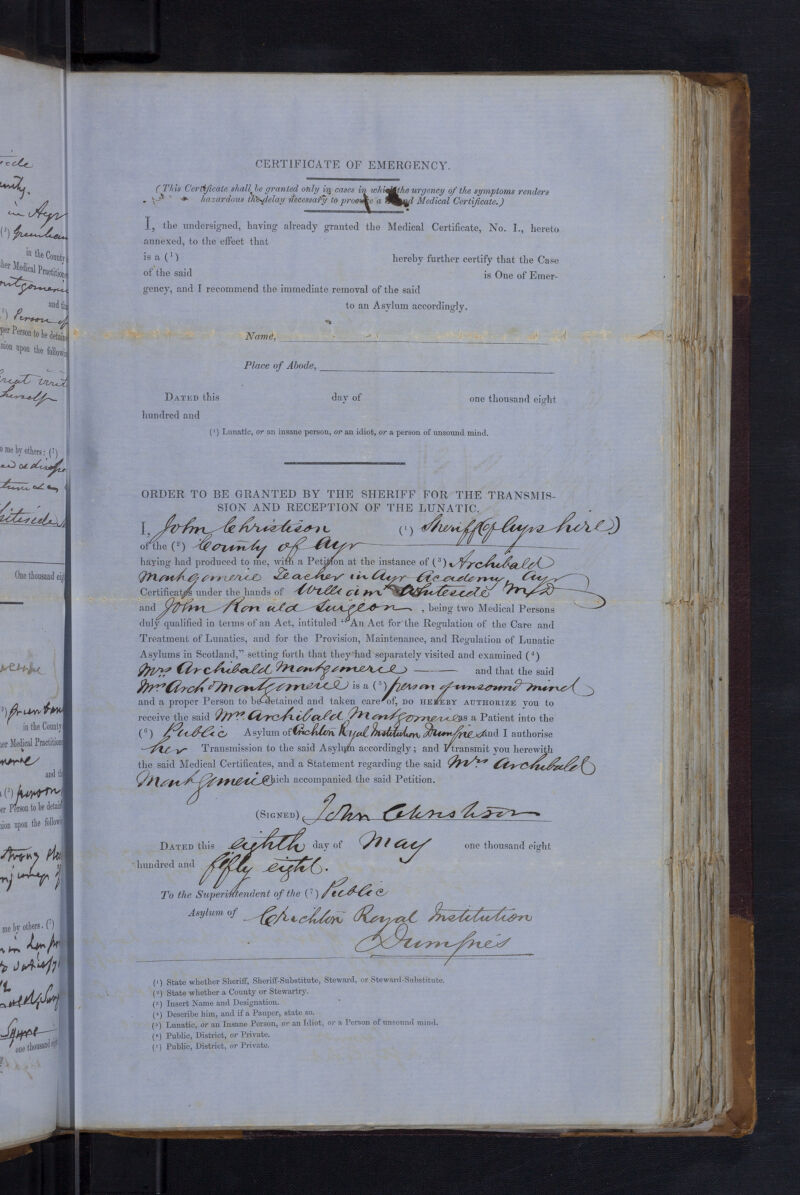 CERTIFICATE OF EMERGENCY.
(This Certificate shall be granted only in cases in which the urgency of the symptoms renders
hazardous the delay necessary to procure a Second Medical Certificate.)
I, the undersigned, having already granted the Medical Certificate, No. I., hereto
annexed, to the effect that
is a (1) hereby further certify that the Case
of the said is One of Emer-
gency, and I recommend the immediate removal of the said
to an Asylum accordingly.
Name,
Place of Abode,
DATED this day of one thousand eight
hundred and
(1) Lunatic, or an insane person, or an idiot, or a person of unsound mind.
ORDER TO BE GRANTED BY THE SHERIFF FOR THE TRANSMIS-
SION AND RECEPTION OF THE LUNATIC.
I, John Christison (1) Sheriff (of Ayrshire)
of the (2) County of Ayr
having had produced to me, with a Petition at the instance of (3) Archibald
Montgomerie Teacher in Ayr Academy Ayr
Certificates under the hands of William Whiteside M.D
and John Ronald Surgeon, being two Medical Persons
duly qualified in terms of an Act, intituled "An Act for the Regulation of the Care and
Treatment of Lunatics, and for the Provision, Maintenance, and Regulation of Lunatic
Asylums in Scotland," setting forth that they had separately visited and examined (4)
Mrs Archibald Montgomerie and that the said
Mrs Archd Montgomerie is a (5) person of unsound mind
and a proper Person to be detained and taken care of, DO HEREBY AUTHORIZE you to
receive the said Mrs Archibald Montgomerie as a Patient into the
(6) Public Asylum of Crichton Royal Institution Dumfries and I authorise
her Transmission to the said Asylum accordingly; and I transmit you herewith
the said Medical Certificates, and a Statement regarding the said Mrs Archibald
Montgomerie which accompanied the said Petition.
(SIGNED) John Christison
DATED this eighth day of May one thousand eight
hundred and fifty eight.
To the Superintendent of the (7) Public
Asylum of Crichton Royal Institution
Dumfries
(1) State whether Sheriff, Sheriff-Substitute, Steward, or Steward-Substitute.
(2) State whether a County or Stewartry.
(3) Insert Name and Designation.
(4) Describe him, and if a Pauper, state so.
(5) Lunatic, or an Insane Person, or an Idiot, or a Person of unsound mind.
(6) Public, District, or Private.
(7) Public, District, or Private.
in the County
her Medical Practition
and the
per Person to be detain
sion upon the follow
o me by others: (1)
One thousand eig
in the County
er Medical Practition
and th
(2) person
er Person to be detai
sion upon the follow
me by others. (2)
one thousand eig